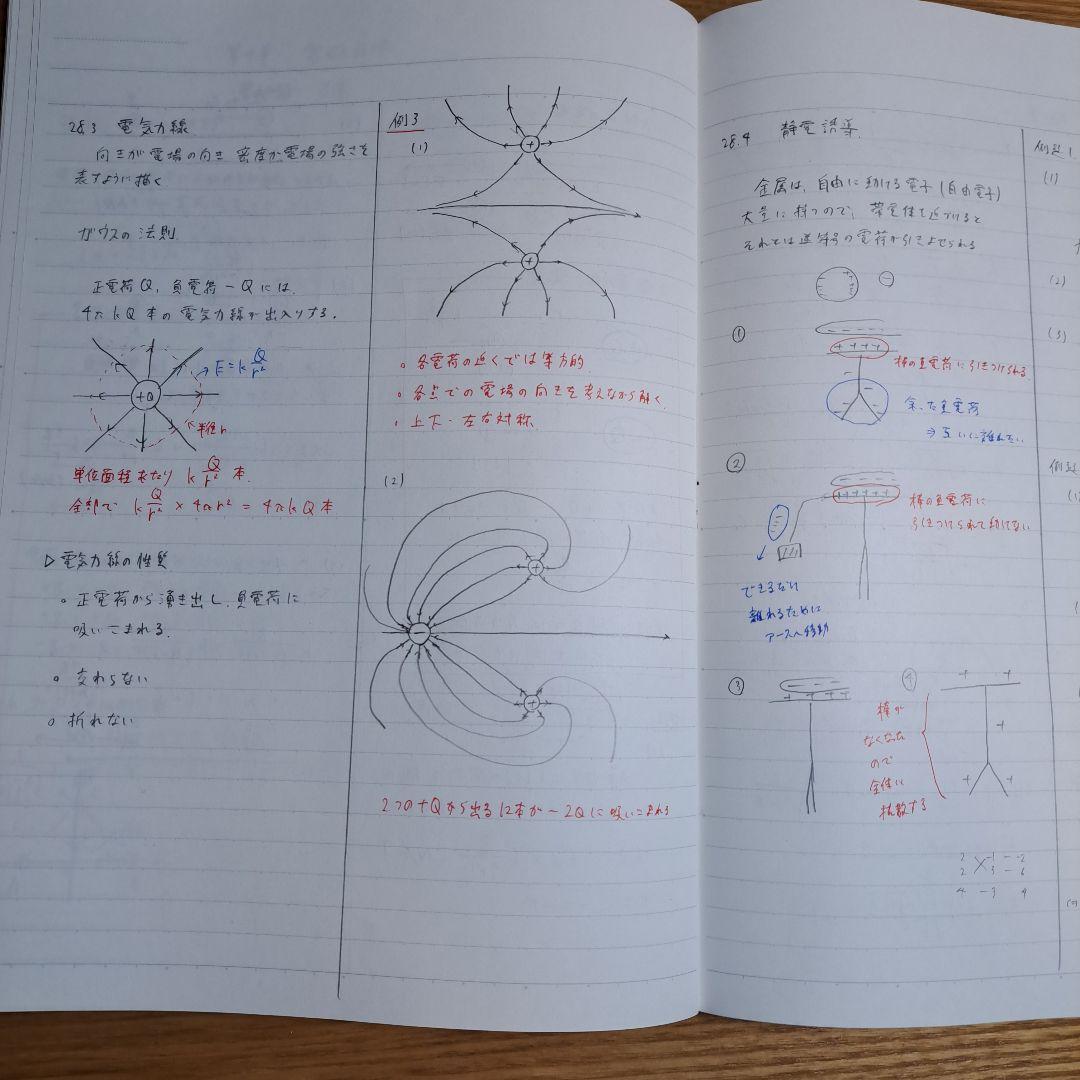 28.3 電気力線
向きが電場の向き 密度が電場の強さを
表すように描く
ガウスの法則
正電荷Q, 負電荷-Qには,
4πkQ本の電気力線が出入りする.
+Q
E=k Q/r²
半径r
単位面積あたり k Q/r² 本.
全部で k Q/r² × 4πr² = 4πkQ本
▷電気力線の性質
○ 正電荷から湧き出し, 負電荷に
吸いこまれる.
○ 交わらない
○ 折れない
例3
(1)
+
+
○ 各電荷の近くでは等方的
○ 各点での電場の向きを考えながら解く.
・ 上下・左右対称.
(2)
+
-
+
2つの+Qから出る12本が-2Qに吸いこまれる
28.4 静電誘導
金属は, 自由に動ける電子(自由電子)
大量に持つので, 帯電体を近づけると
それとは逆符号の電荷が引きよせられる
-
①
- - - -
+ + + +
棒の負電荷に引きつけられる.
余った負電荷
⇒ 互いに離れたい
②
- - - -
+ + + + + +
棒の負電荷に
引きつけられて動けない
できるだけ
離れるために
アースへ移動
③
- - - -
+ + + +
④
+ +
+
+ +
棒が
なくなった
ので
全体に
拡散する
2 -1 - -2
2 3 - 6
4 -3 4
例題1.
(1)
(2)
(3)
例題